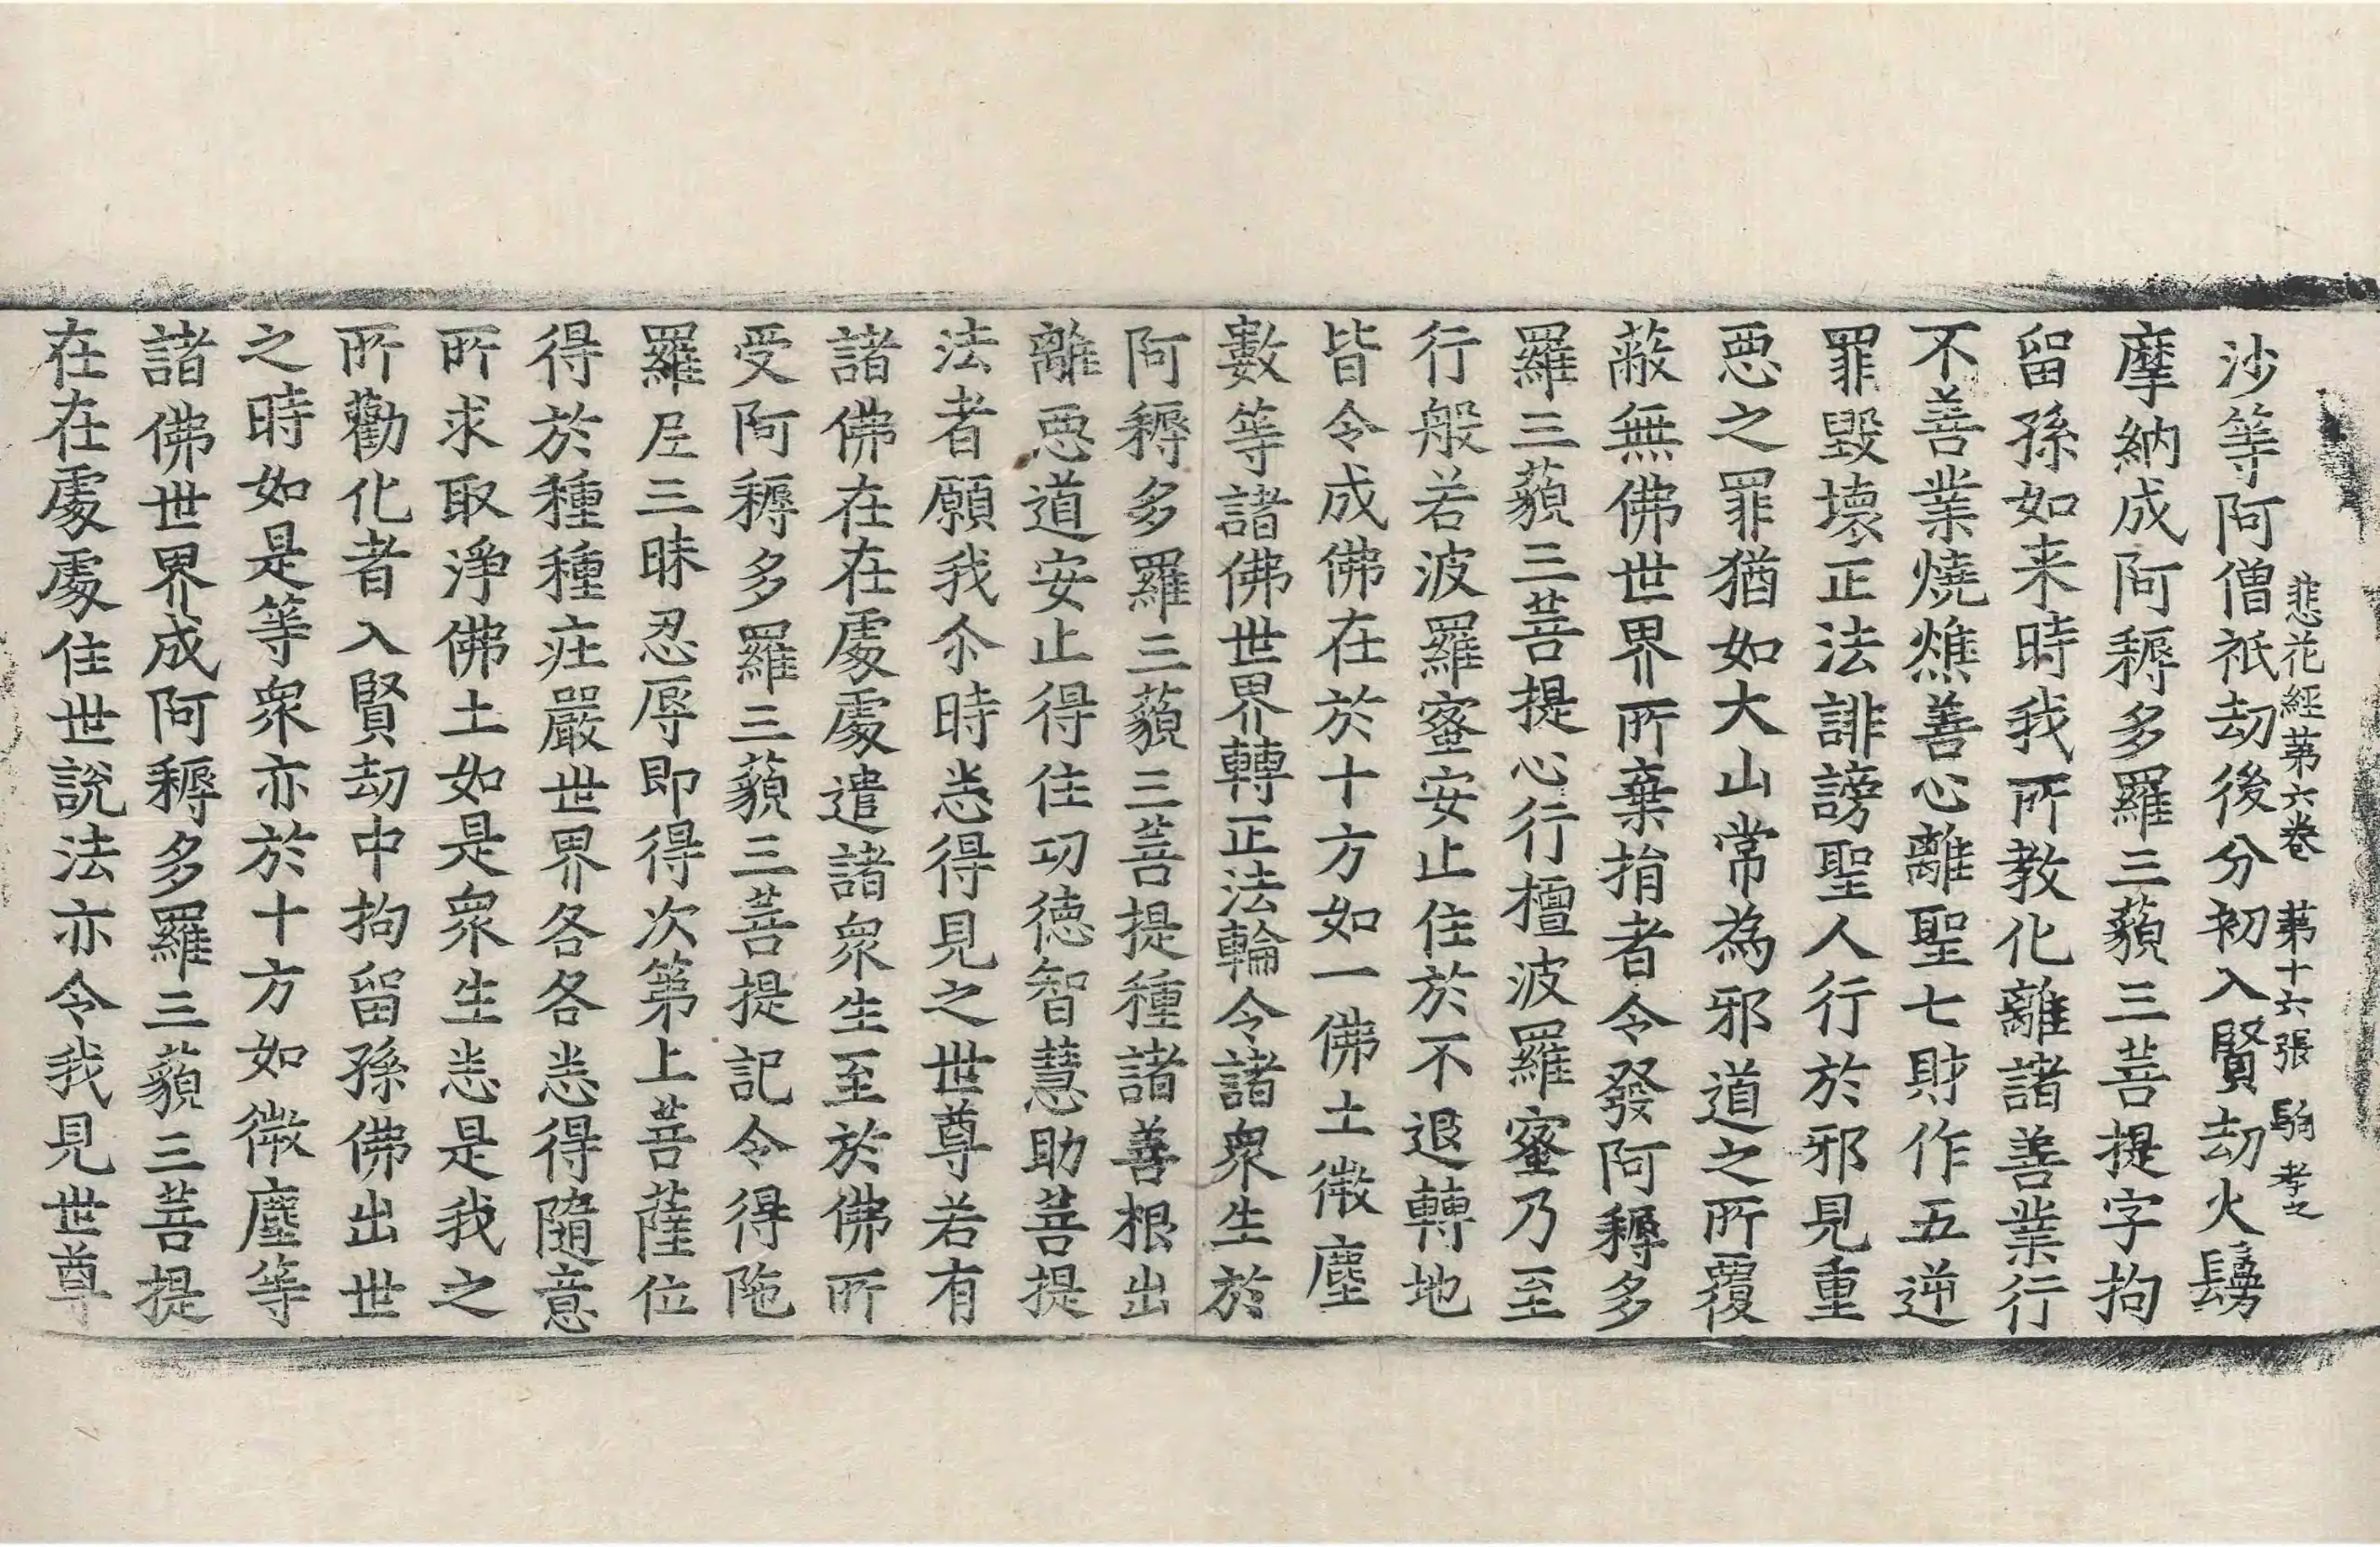 悲花經第六卷　第十六張　駒　孝之
沙等阿僧祇劫後分初入賢劫火鬘
摩納成阿耨多羅三藐三菩提字拘
留孫如来時我所教化離諸善業行
不善業燒燋善心離聖七財作五逆
罪毀壞正法誹謗聖人行於邪見重
惡之罪猶如大山常為邪道之所覆
蔽無佛世界所棄捐者令發阿耨多
羅三藐三菩提心行檀波羅蜜乃至
行般若波羅蜜安止住於不退轉地
皆令成佛在於十方如一佛土微塵
數等諸佛世界轉正法輪令諸衆生於
阿耨多羅三藐三菩提種諸善根出
離惡道安止得住功德智慧助菩提
法者願我尒時悉得見之世尊若有
諸佛在在處處遣諸衆生至於佛所
受阿耨多羅三藐三菩提記令得陁
羅尼三昧忍辱即得次第上菩薩位
得於種種莊嚴世界各各悉得隨意
所求取淨佛土如是衆生悉是我之
所勸化者入賢劫中拘留孫佛出世
之時如是等衆亦於十方如微塵等
諸佛世界成阿耨多羅三藐三菩提
在在處處住世說法亦令我見世尊